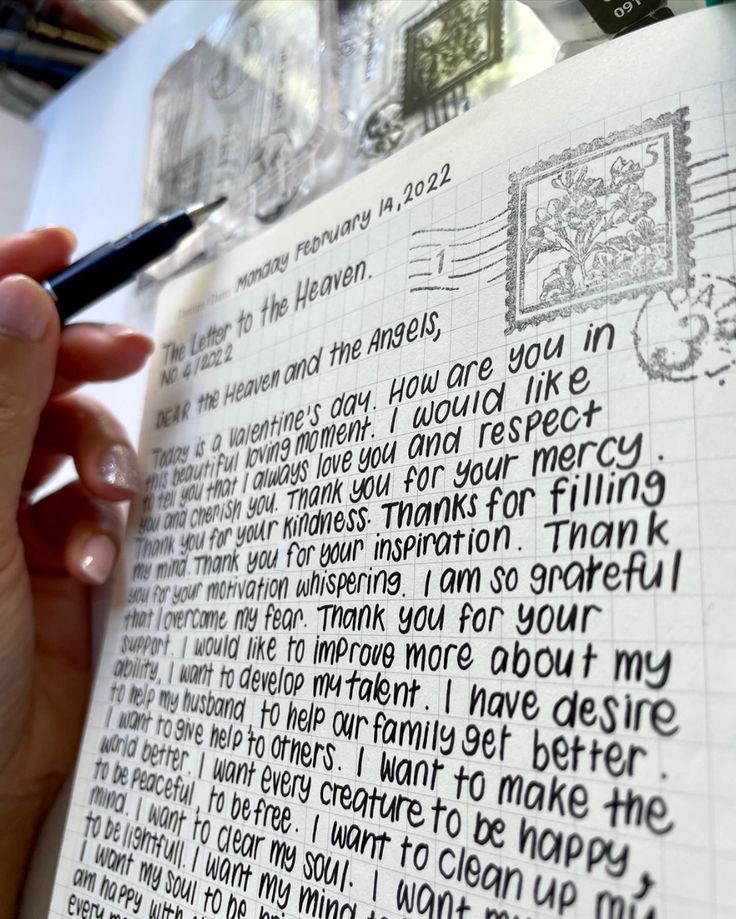 091
Monday February 14, 2022
The Letter to the Heaven.
NO. 4/2022
5
1
3
DEAR the Heaven and the Angels,
Today is a Valentine's day. How are you in
this beautiful loving moment. I would like
to tell you that I always love you and respect
you and cherish you. Thank you for your mercy.
Thank you for your kindness. Thanks for filling
my mind. Thank you for your inspiration. Thank
you for your motivation whispering. I am so grateful
that I overcome my fear. Thank you for your
support. I would like to improve more about my
ability, I want to develop my talent. I have desire
to help my husband, to help our family get better.
I want to give help to others. I want to make the
world better. I want every creature to be happy,
to be peaceful, to be free. I want to clean up my
mind. I want to clear my soul. I want
to be lightfull. I want my mind to
I want my soul to be
am happy with
every